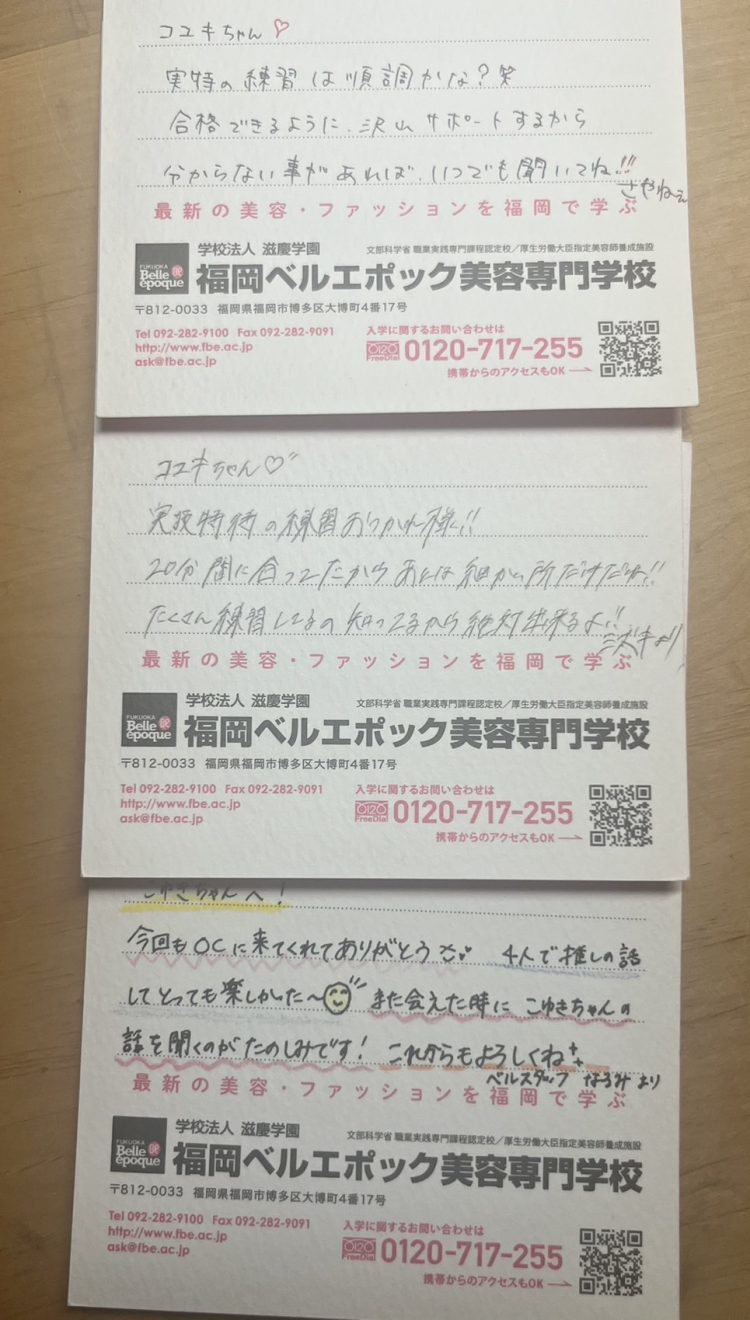 コユキちゃん♡
実特の練習は順調かな？笑
合格できるように、沢山サポートするから
分からない事があれば、いつでも聞いてね!!
さやねぇ
最新の美容・ファッションを福岡で学ぶ
FUKUOKA
Belle
époque
学校法人 滋慶学園
文部科学省 職業実践専門課程認定校／厚生労働大臣指定美容師養成施設
福岡ベルエポック美容専門学校
〒812-0033 福岡県福岡市博多区大博町4番17号
Tel 092-282-9100 Fax 092-282-9091
http://www.fbe.ac.jp
ask@fbe.ac.jp
入学に関するお問い合わせは
0120
FreeDial
0120-717-255
携帯からのアクセスもOK
コユキちゃん♡
実技特待の練習おつかれ様!!
20分間に合ってたからあとは細かい所だけだね!!
たくさん練習してるの知ってるから絶対出来るよ!!
ミズキより
最新の美容・ファッションを福岡で学ぶ
FUKUOKA
Belle
époque
学校法人 滋慶学園
文部科学省 職業実践専門課程認定校／厚生労働大臣指定美容師養成施設
福岡ベルエポック美容専門学校
〒812-0033 福岡県福岡市博多区大博町4番17号
Tel 092-282-9100 Fax 092-282-9091
http://www.fbe.ac.jp
ask@fbe.ac.jp
入学に関するお問い合わせは
0120
FreeDial
0120-717-255
携帯からのアクセスもOK
こゆきちゃんへ！
今回もOCに来てくれてありがとう 4人で推しの話
してとっても楽しかった〜 また会えた時に こゆきちゃんの
話を聞くのがたのしみです！ これからもよろしくね
ベルスタッフ なるみ より
最新の美容・ファッションを福岡で学ぶ
FUKUOKA
Belle
époque
学校法人 滋慶学園
文部科学省 職業実践専門課程認定校／厚生労働大臣指定美容師養成施設
福岡ベルエポック美容専門学校
〒812-0033 福岡県福岡市博多区大博町4番17号
Tel 092-282-9100 Fax 092-282-9091
http://www.fbe.ac.jp
ask@fbe.ac.jp
入学に関するお問い合わせは
0120
FreeDial
0120-717-255
携帯からのアクセスもOK